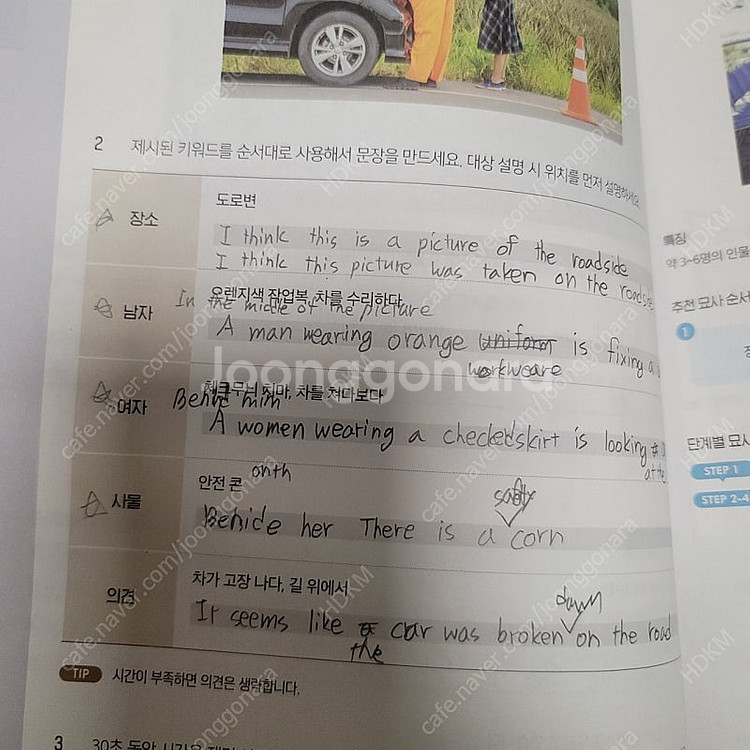 2 제시된 키워드를 순서대로 사용해서 문장을 만드세요. 대상 설명 시 위치를 먼저 설명하세요.
장소
도로변
I think this is a picture of the roadside
I think this picture was taken on the roadside
남자
오렌지색 작업복, 차를 수리하다
In the middle of the picture
A man wearing orange uniform is fixing a
workweare
여자
체크무늬 치마, 차를 쳐다보다
Behind him
A women wearing a checkedskirt is looking
at the
사물
안전 콘
onth
safty
Behide her There is a corn
의견
차가 고장 나다, 길 위에서
down
It seems like a car was broken on the road
the
TIP 시간이 부족하면 의견은 생략합니다.
3 30초 동안
특징
약 3~6명의 인물
추천 묘사 순서
1
단계별 묘사
STEP 1
STEP 2-4
Joonggonara
cafe.naver.com/joonggonara
HDKM